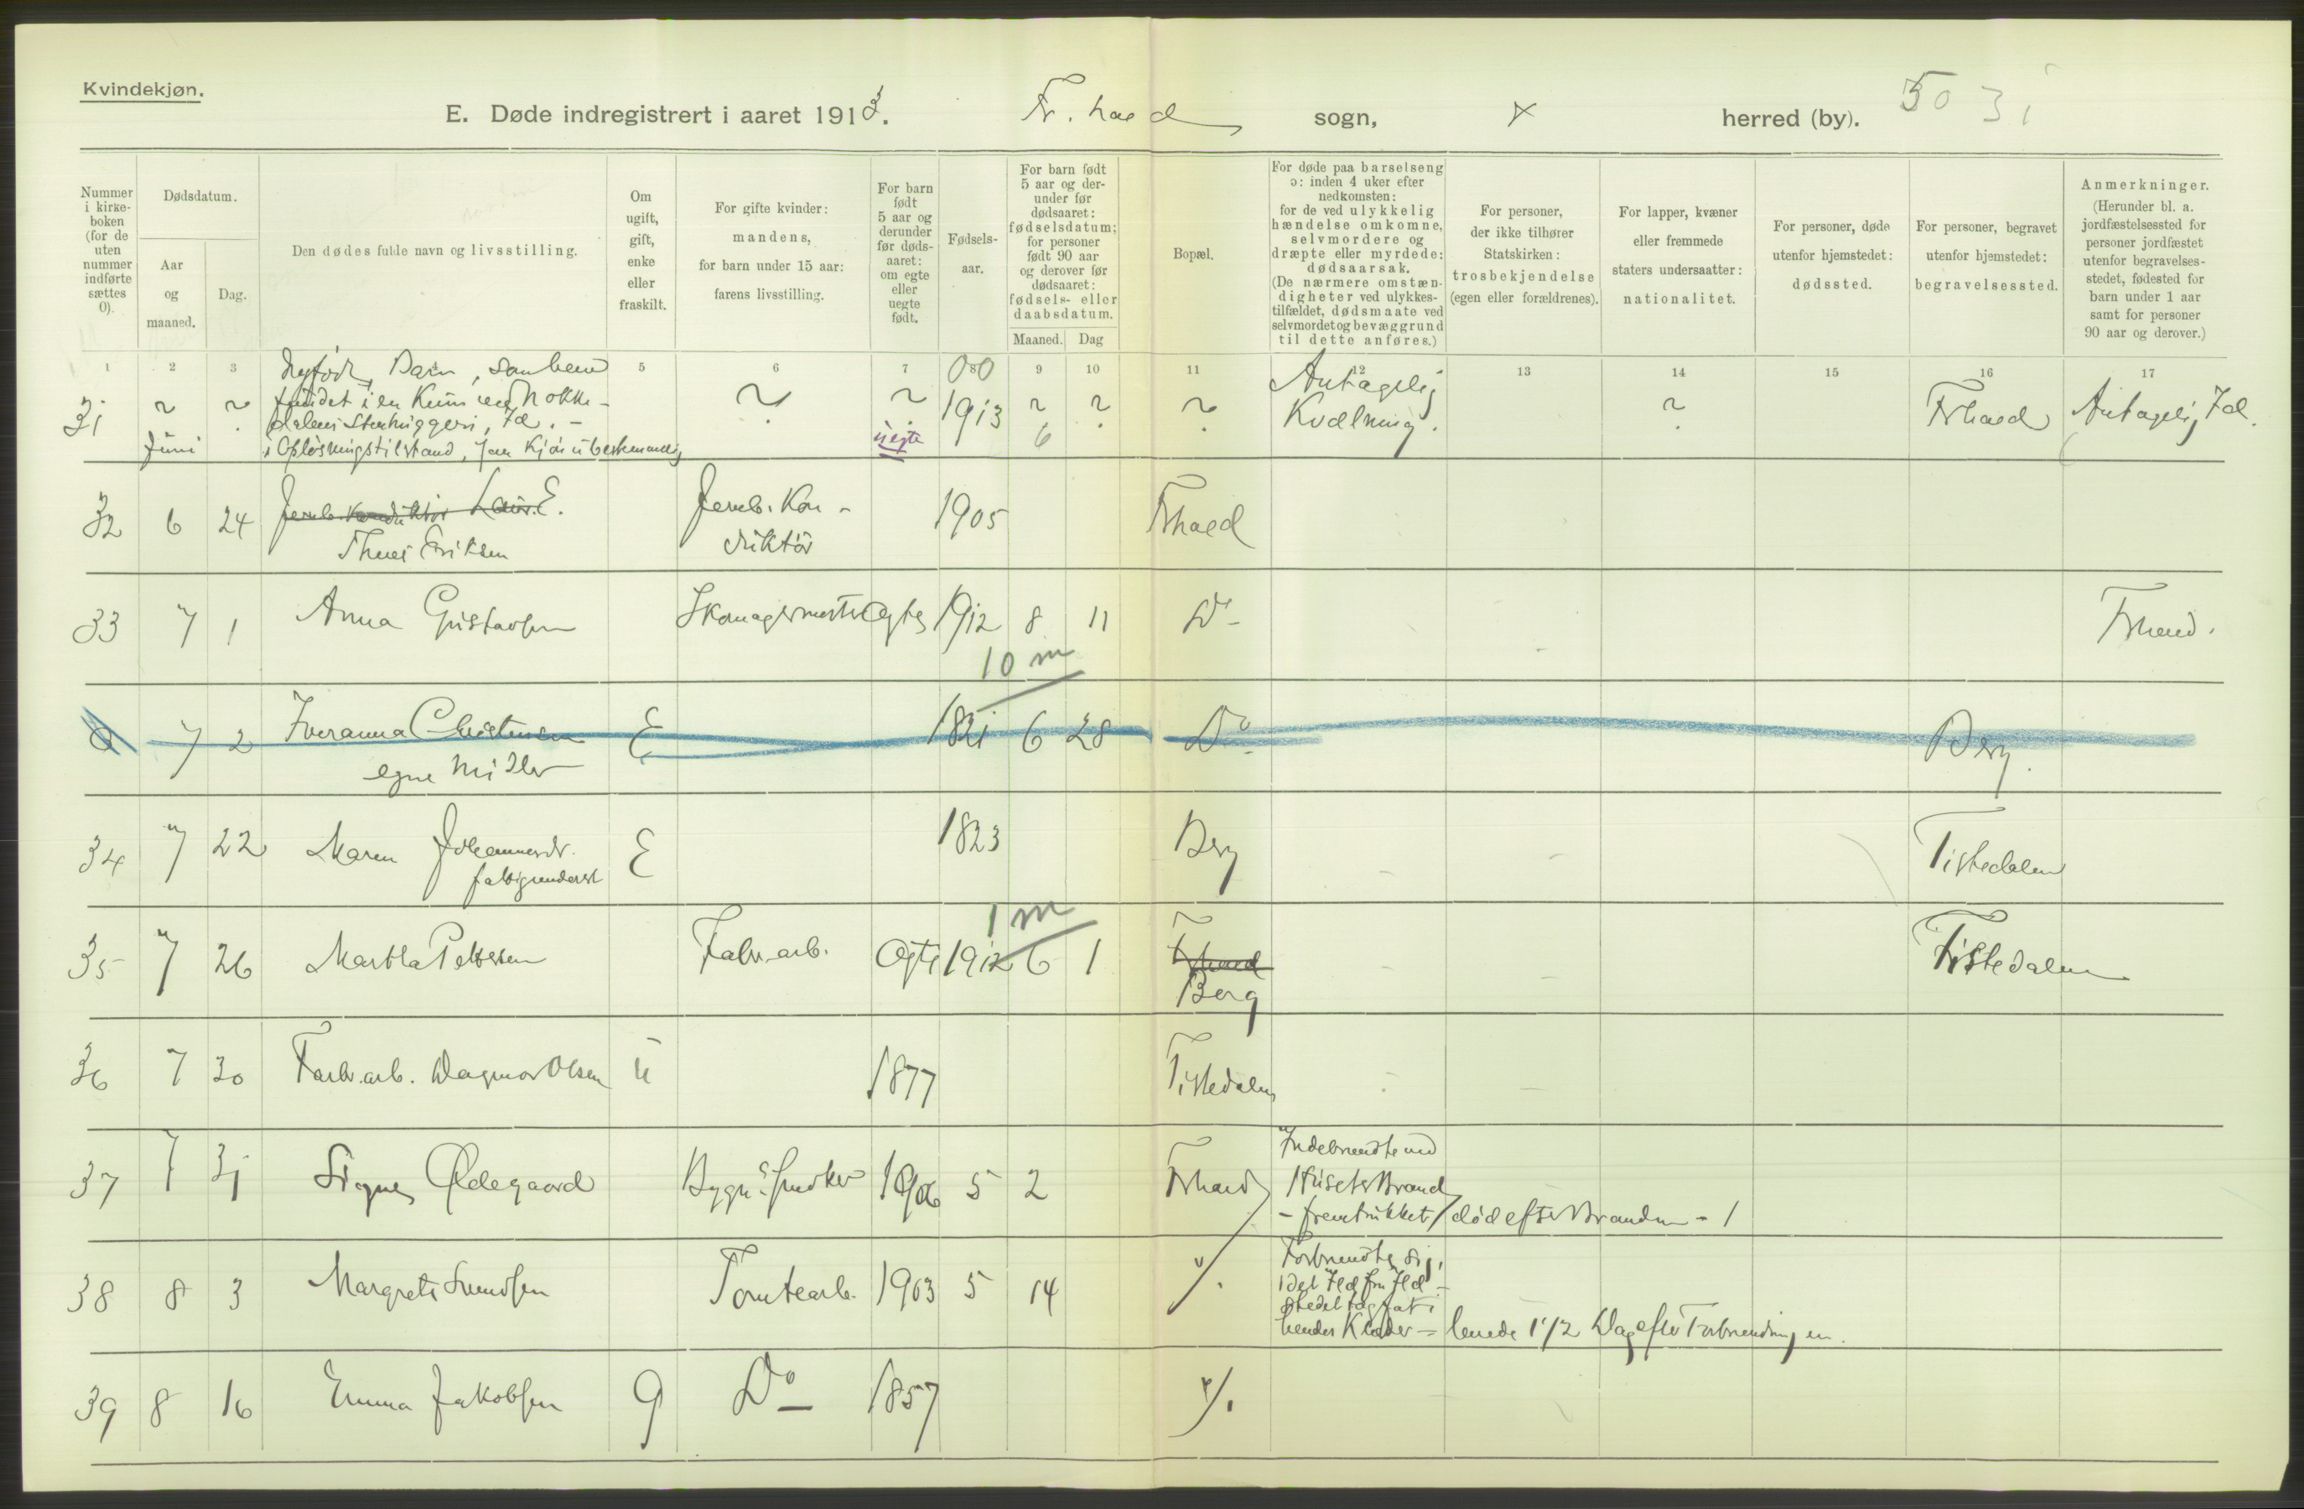 Kvindekjøn.
E. Døde indregistrert i aaret 1913. Fr. hald sogn, herred (by). 50 31
Nummer i kirke-boken (for de uten nummer indførte sættes 0).
Dødsdatum.
Aar og maaned.
Dag.
Den dødes fulde navn og livsstilling.
Om ugift, gift, enke eller fraskilt.
For gifte kvinder: mandens, for barn under 15 aar: farens livsstilling.
For barn født 5 aar og derunder før døds-aaret: om egte eller uegte født.
Fødsels-aar.
For barn født 5 aar og der-under før dødsaaret: fødselsdatum; for personer født 90 aar og derover før dødsaaret: fødsels- eller daabsdatum.
Maaned. Dag
Bopæl.
For døde paa barselseng ɔ: inden 4 uker efter nedkomsten: for de ved ulykkelig hændelse omkomne, selvmordere og dræpte eller myrdede: dødsaarsak. (De nærmere omstæn-digheter ved ulykkes-tilfældet, dødsmaate ved selvmordet og bevæggrund til dette anføres.)
For personer, der ikke tilhører Statskirken: trosbekjendelse (egen eller forældrenes).
For lapper, kvæner eller fremmede staters undersaatter: nationalitet.
For personer, døde utenfor hjemstedet: dødssted.
For personer, begravet utenfor hjemstedet: begravelsessted.
Anmerkninger. (Herunder bl. a. jordfæstelsessted for personer jordfæstet utenfor begravelses-stedet, fødested for barn under 1 aar samt for personer 90 aar og derover.)
1 2 3 5 6 7 8 9 10 11 12 13 14 15 16 17
31 ? ? Juni Nyfødt Barn, som blev
fundet i en Kum ved Nokke-
dalens Stenhuggeri, Id. -
i Opløsningstilstand, Kjøn ubestemmelig
? ? uegte 00 1913 ? 6 ? ? Antagelig Kvælning. ? Frhald Antagelig Id.
32 6 24 Jernb. Konduktør Laur. E.
Thea Eriksen
Jernb. Kon-
duktør 1905 Frhald
33 7 1 Anna Gustavsen Skomagermester Egte 1912 8 11 Do - Frhald.
10 m
0 7 2 Iveranna Christensen
egne Midler
E 1821 6 28 Do - Berg.
34 7 22 Maren Johannesdr.
fattigunderst
E 1823 Berg Tistedalen
1 m
35 7 26 Martha Pettersen Fabr.arb. Egte 1912 6 1 Frhald
Berg
Tistedalen
36 7 30 Fabr.arb. Dagmar Olsen U 1877 Tistedalen
37 7 31 Signe Ødegaard Bygn.snedker 1906 5 2 Frhald Indebrændte ved
Husets Brand
- fremtrukket død efter Branden - 1
38 8 3 Margrete Svendsen Tomtearb. 1903 5 14 "/. Forbrændte sig,
idet Ild fra Ild-
stedet tog fat i
hendes Klæder - levede 1 1/2 Dag efter Forbrændingen.
39 8 16 Emma Jakobsen g Do - 1857 "/.